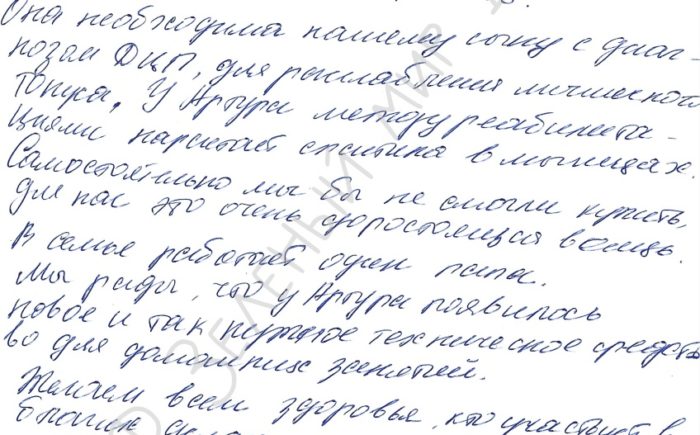 Она необходима нашему сыну с диаг-
нозам ДЦП, для расслабления мышечного
тонуса. У Артура между реабилита-
циями нарастает спастика в мышцах.
Самостоятельно мы бы не смогли купить,
для нас это очень дорогостоящая вещь.
В семье работает один папа.
Мы рады, что у Артура появилось
новое и так нужное техническое средст
во для домашних занятий.
Желаем всем здоровья, кто участвует в
благих
ЗЕЛЕНЫЙ МИР